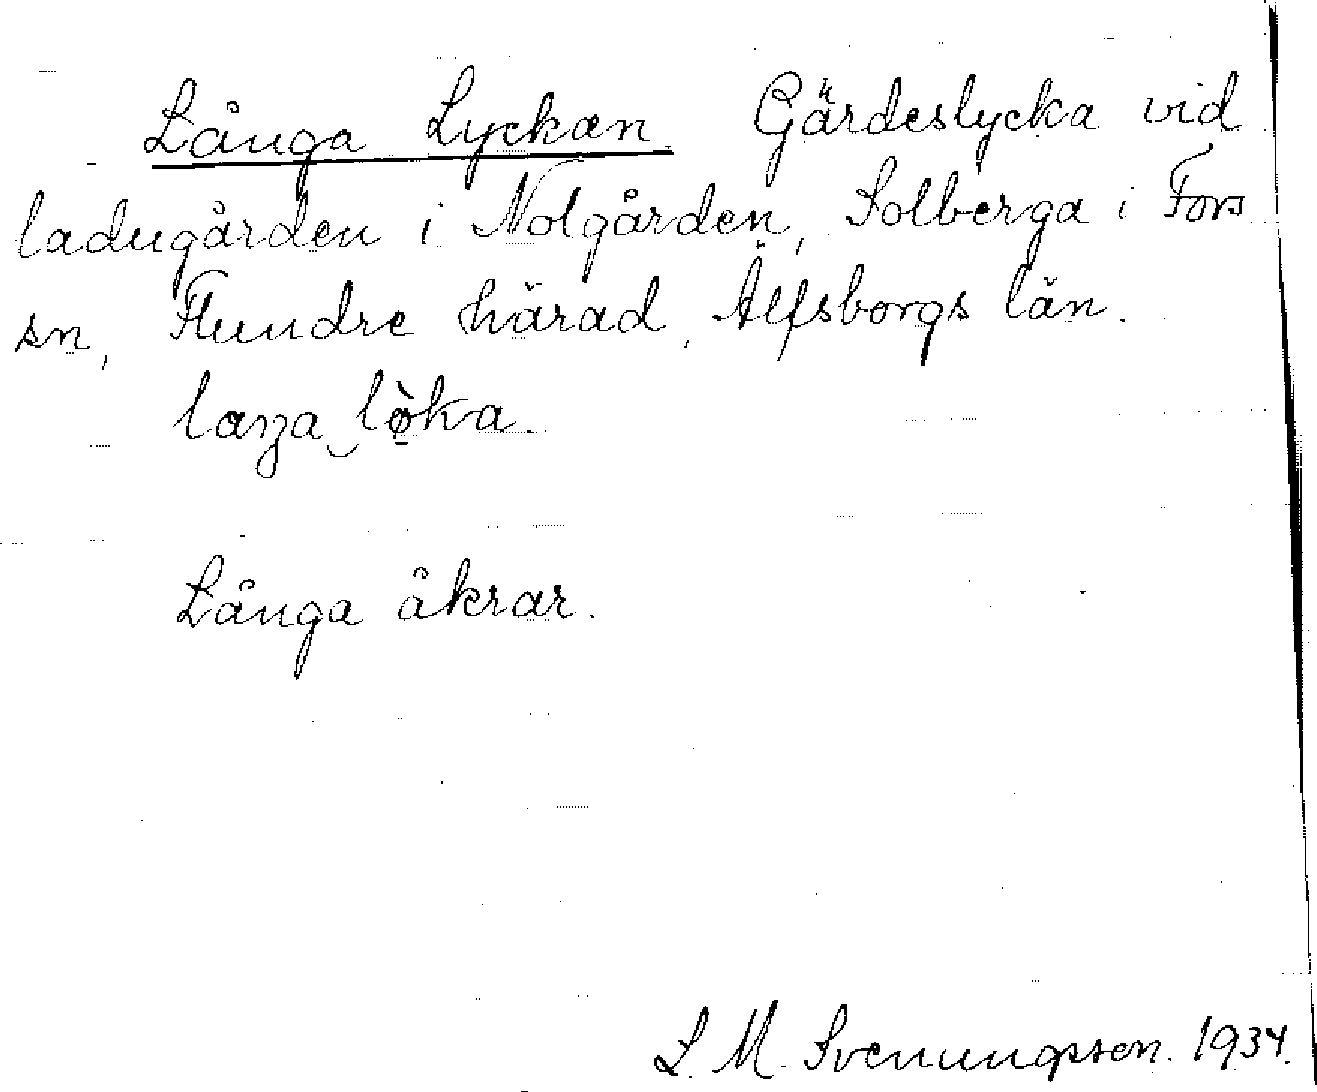 Långa Lyckan. Gärdeslycka vid
ladugården i Nolgården, Solberga i Fors
sn, Flundre härad, Älfsborgs län.
laŋa‿lö̀ka.
Långa åkrar.
S. M. Svenungsson. 1934.